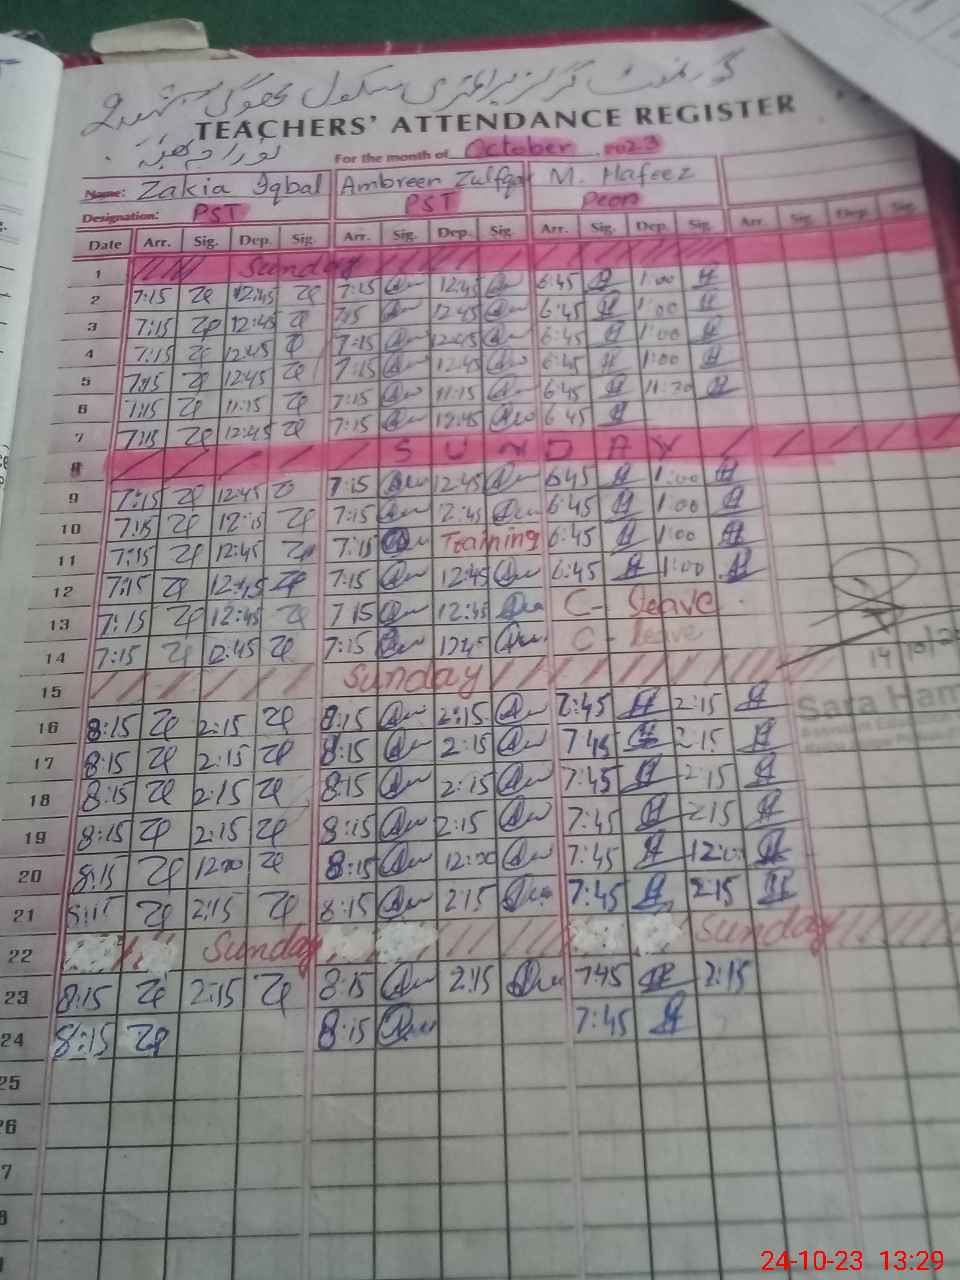 گورنمنٹ گرلز پرائمری سکول
TEACHERS' ATTENDANCE REGISTER
For the month of October 2023
Name: Zakia Iqbal Ambreen Zulfqar M. Hafeez
Designation: PST PST Peon
Date Arr. Sig. Dep. Sig. Arr. Sig. Dep. Sig. Arr. Sig. Dep. Sig. Arr. Sig. Dep. Sig.
1 Sunday
2 7:15 12:45 7:15 12:45 6:45 1:00
3 7:15 12:45 7:15 12:45 6:45 1:00
4 7:15 12:45 7:15 12:45 6:45 1:00
5 7:15 12:45 7:15 12:45 6:45 1:00
6 7:15 11:15 7:15 11:15 6:45 11:30
7 7:15 12:45 7:15 12:45 6:45
8 SUNDAY
9 7:15 12:45 7:15 12:45 6:45 1:00
10 7:15 12:15 7:15 2:45 6:45 1:00
11 7:15 12:45 7:15 Training 6:45 1:00
12 7:15 12:45 7:15 12:45 6:45 1:00
13 7:15 12:45 7:15 12:45 C- leave
14 7:15 12:45 7:15 12:45 C- leave
14/10/2
15 Sunday
Sara Ham
16 8:15 2:15 8:15 2:15 7:45 2:15
17 8:15 2:15 8:15 2:15 7:45 2:15
18 8:15 2:15 8:15 2:15 7:45 2:15
19 8:15 2:15 8:15 2:15 7:45 2:15
20 8:15 12:00 8:15 12:00 7:45 12:0
21 8:15 2:15 8:15 2:15 7:45 2:15
22 Sunday Sunday
23 8:15 2:15 8:15 2:15 7:45 2:15
24 8:15 8:15 7:45
25
26
7
8
24-10-23 13:29